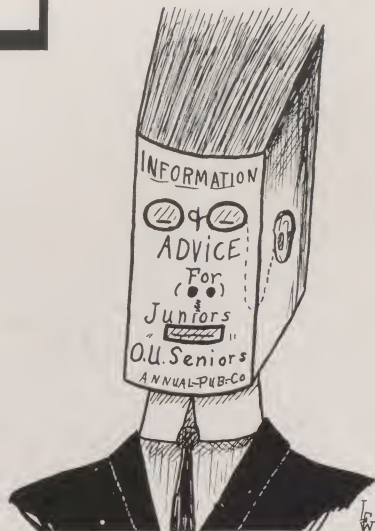 INFORMATION
&
ADVICE
For
&
Juniors
O.U. Seniors
ANNUAL-PUB-Co